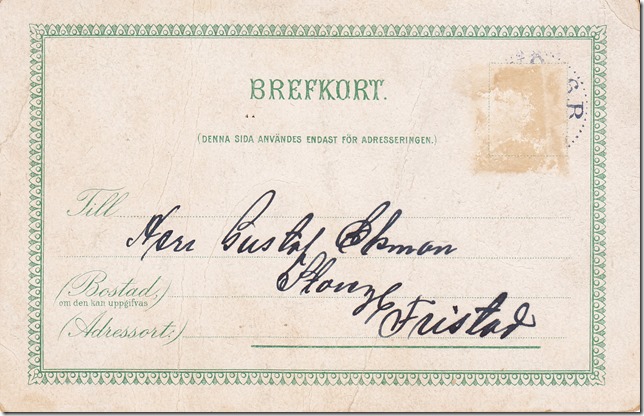 BREFKORT.
(DENNA SIDA ANVÄNDES ENDAST FÖR ADRESSERINGEN.)
Till
Herr Gustaf Ekman
(Bostad,)
om den kan uppgifvas
(Adressort:)
Fristad